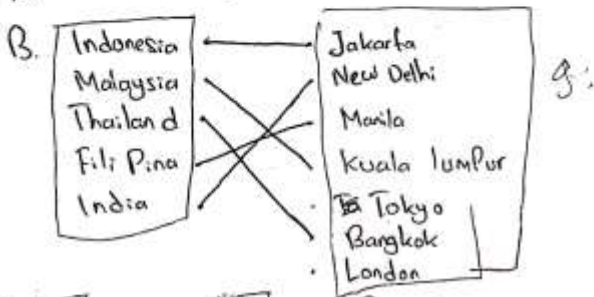 B.
Indonesia
Malaysia
Thailand
Fili Pina
India
Jakarta
New Delhi
Manila
Kuala lumpur
Tokyo
Bangkok
London